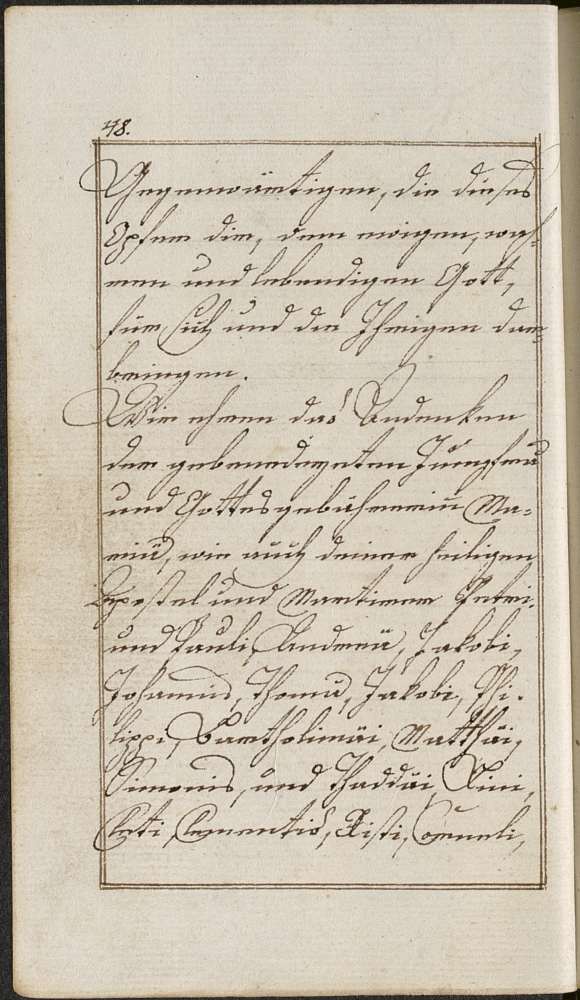 48.
Gegenwärtigen, die dieses
Opfer dir, dem ewigen, wah-
ren und lebendigen Gott,
für sich und die Ihrigen dar-
bringen.
Wir ehren das Andenken
der gebenedeyten Jungfrau
und Gottesgebährerin Ma-
riä, wie auch deiner heiligen
Apostel und Martirer Petri
und Pauli, Andreä, Jakobi,
Johannis, Thomä, Jakobi, Phi-
lippi, Bartholimäi, Matthäi,
Simonis, und Thaddäi, Lini,
Kleti, Clementis, Xisti, Corneli,